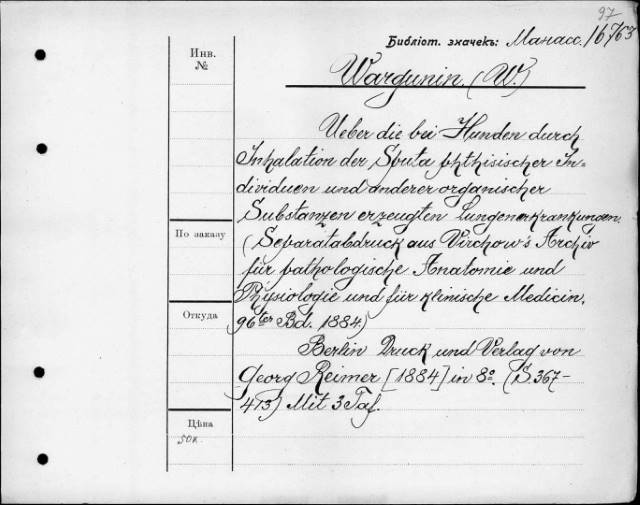 97
Библіот. значекъ: Манасс. 16763
Инв.
№
Wargunin (W.)
Ueber die bei Hunden durch
Inhalation der Sputa phthisischer In-
dividuen und anderer organischer
Substanzen erzeugten Lungenerkrankungen.
По заказу
(Separatabdruck aus Virchow's Archiv
für pathologische Anatomie und
Physiologie und für klinische Medicin.
Откуда
96ter Bd. 1884.)
Berlin Druck und Verlag von
Georg Reimer [1884] in 8º. (S. 367-
413) Mit 3 Taf.
Цѣна
50к.